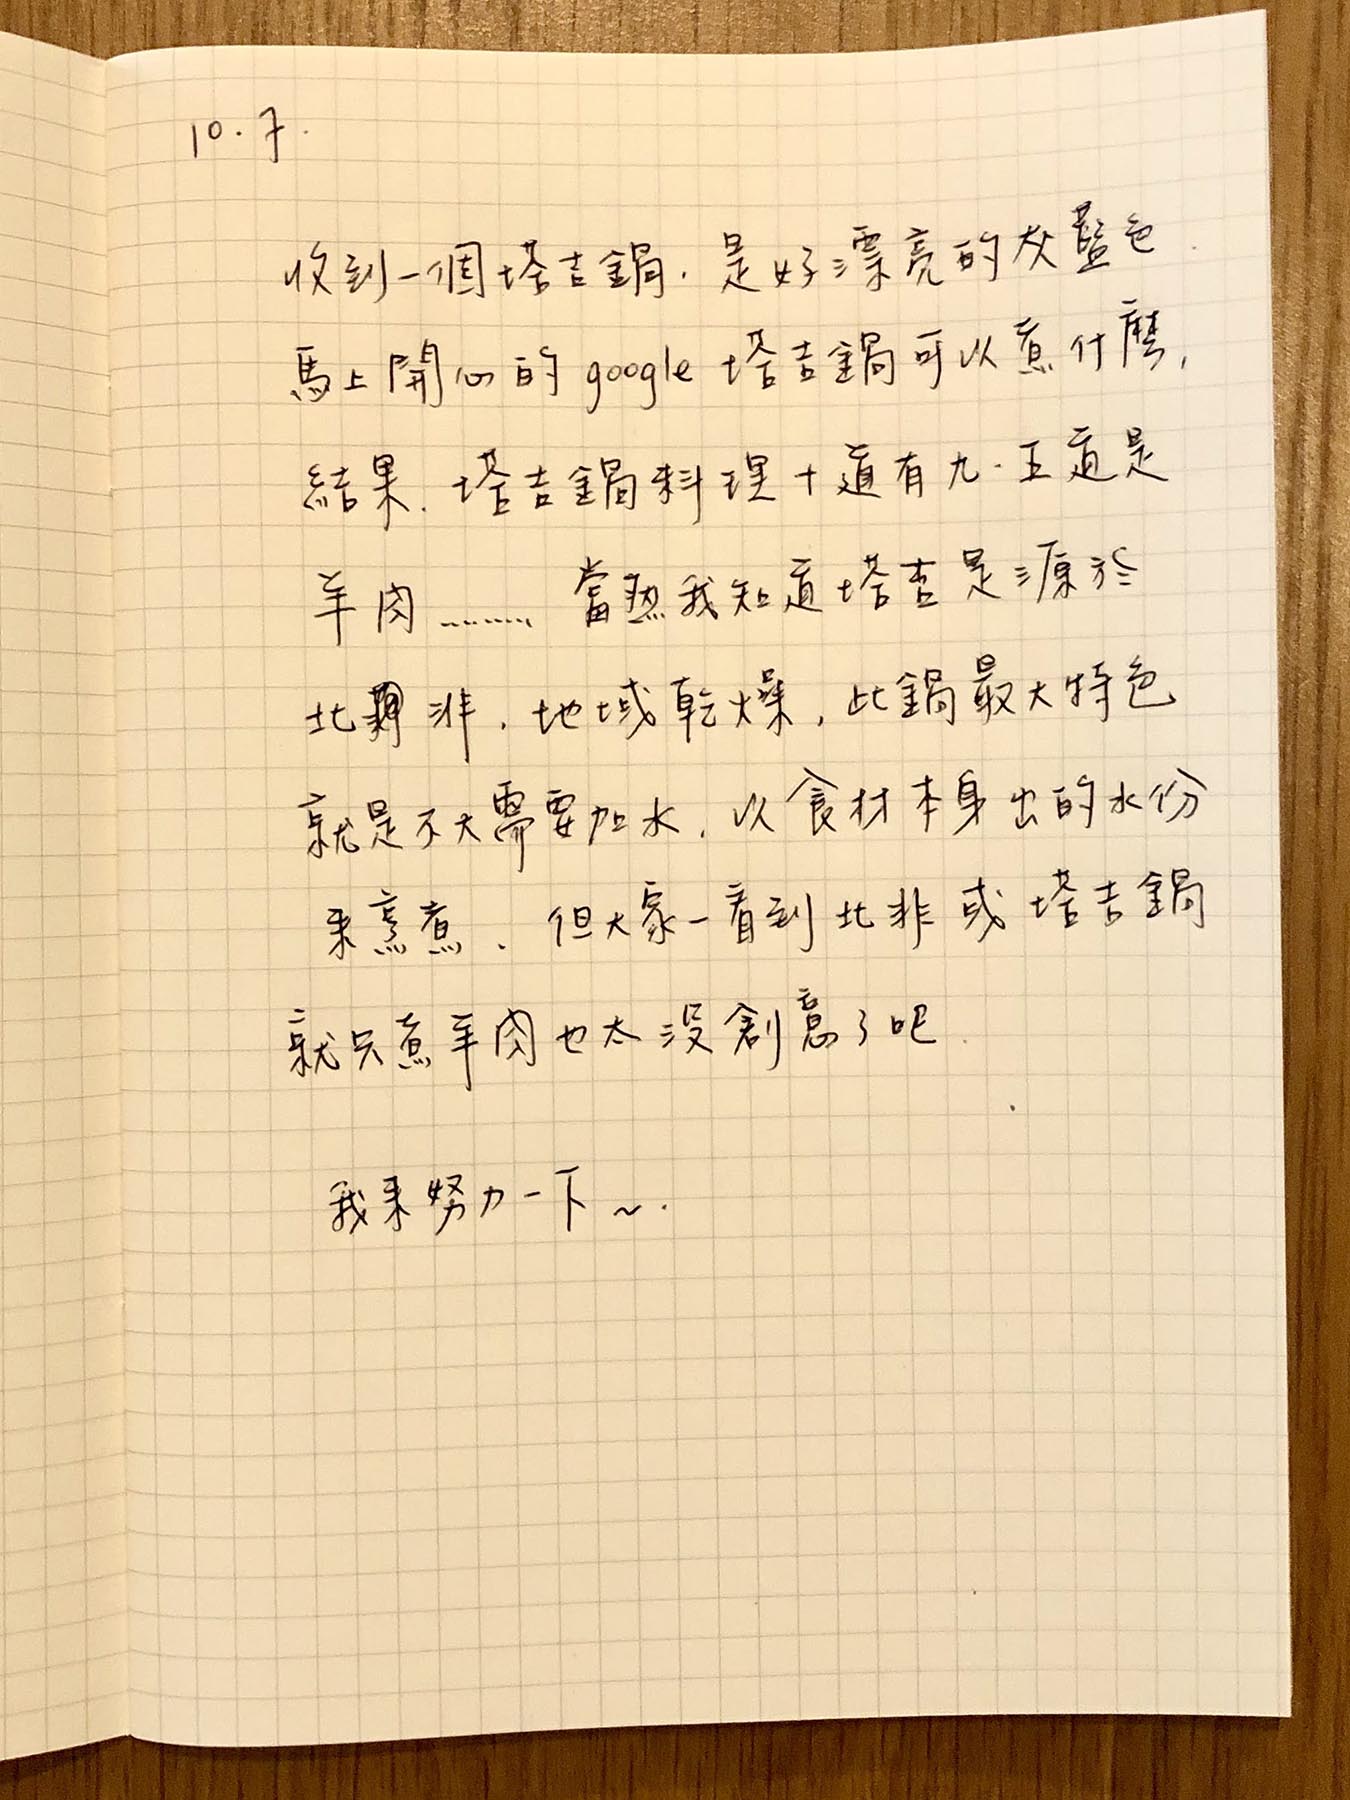 10.7.
收到一個塔吉鍋.是好漂亮的灰藍色.
馬上開心的google塔吉鍋可以煮什麼,
結果.塔吉鍋料理十道有九.五道是
羊肉………當然我知道塔吉是源於
北非,地域乾燥,此鍋最大特色
就是不大需要加水,以食材本身出的水份
來烹煮、但大家一看到北非或塔吉鍋
就只煮羊肉也太沒創意了吧.
我來努力一下~.